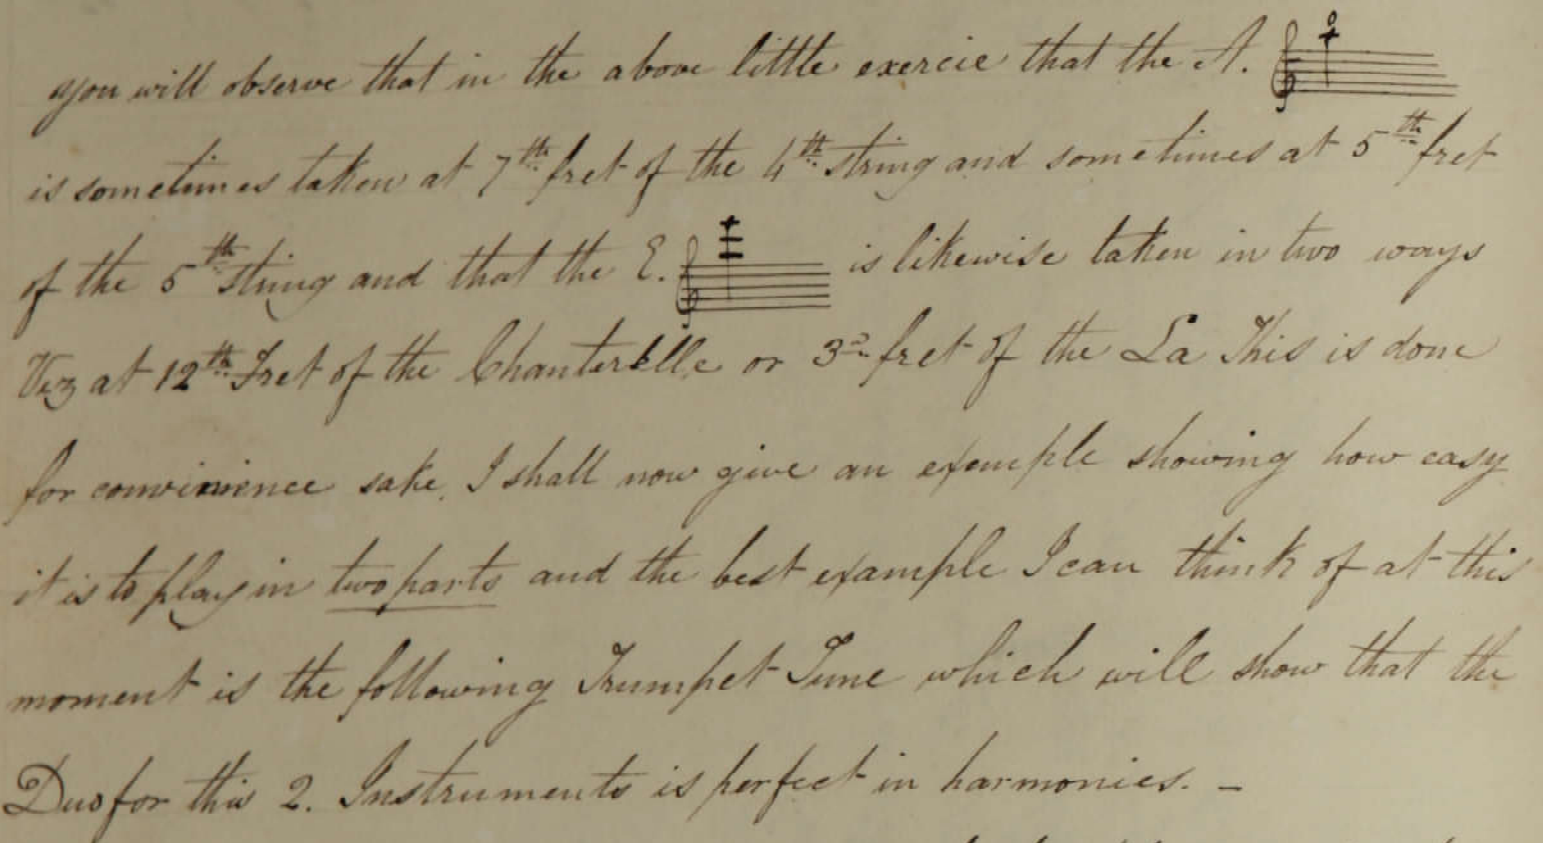 you will observe that in the above little exercie that the A.
is sometimes taken at 7th fret of the 4th string and sometimes at 5th fret
of the 5th string and that the E. is likewise taken in two ways
Viz at 12th Fret of the Chanterelle or 3d fret of the La This is done
for convinience sake. I shall now give an example showing how easy
it is to play in two parts and the best example I can think of at this
moment is the following Trumpet Tune which will show that the
Duo for this 2. Instruments is perfect in harmonics. -